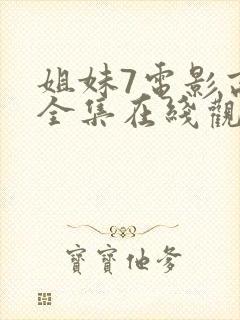 姐妹7電影高
全集在綫觀
寶寶他爹